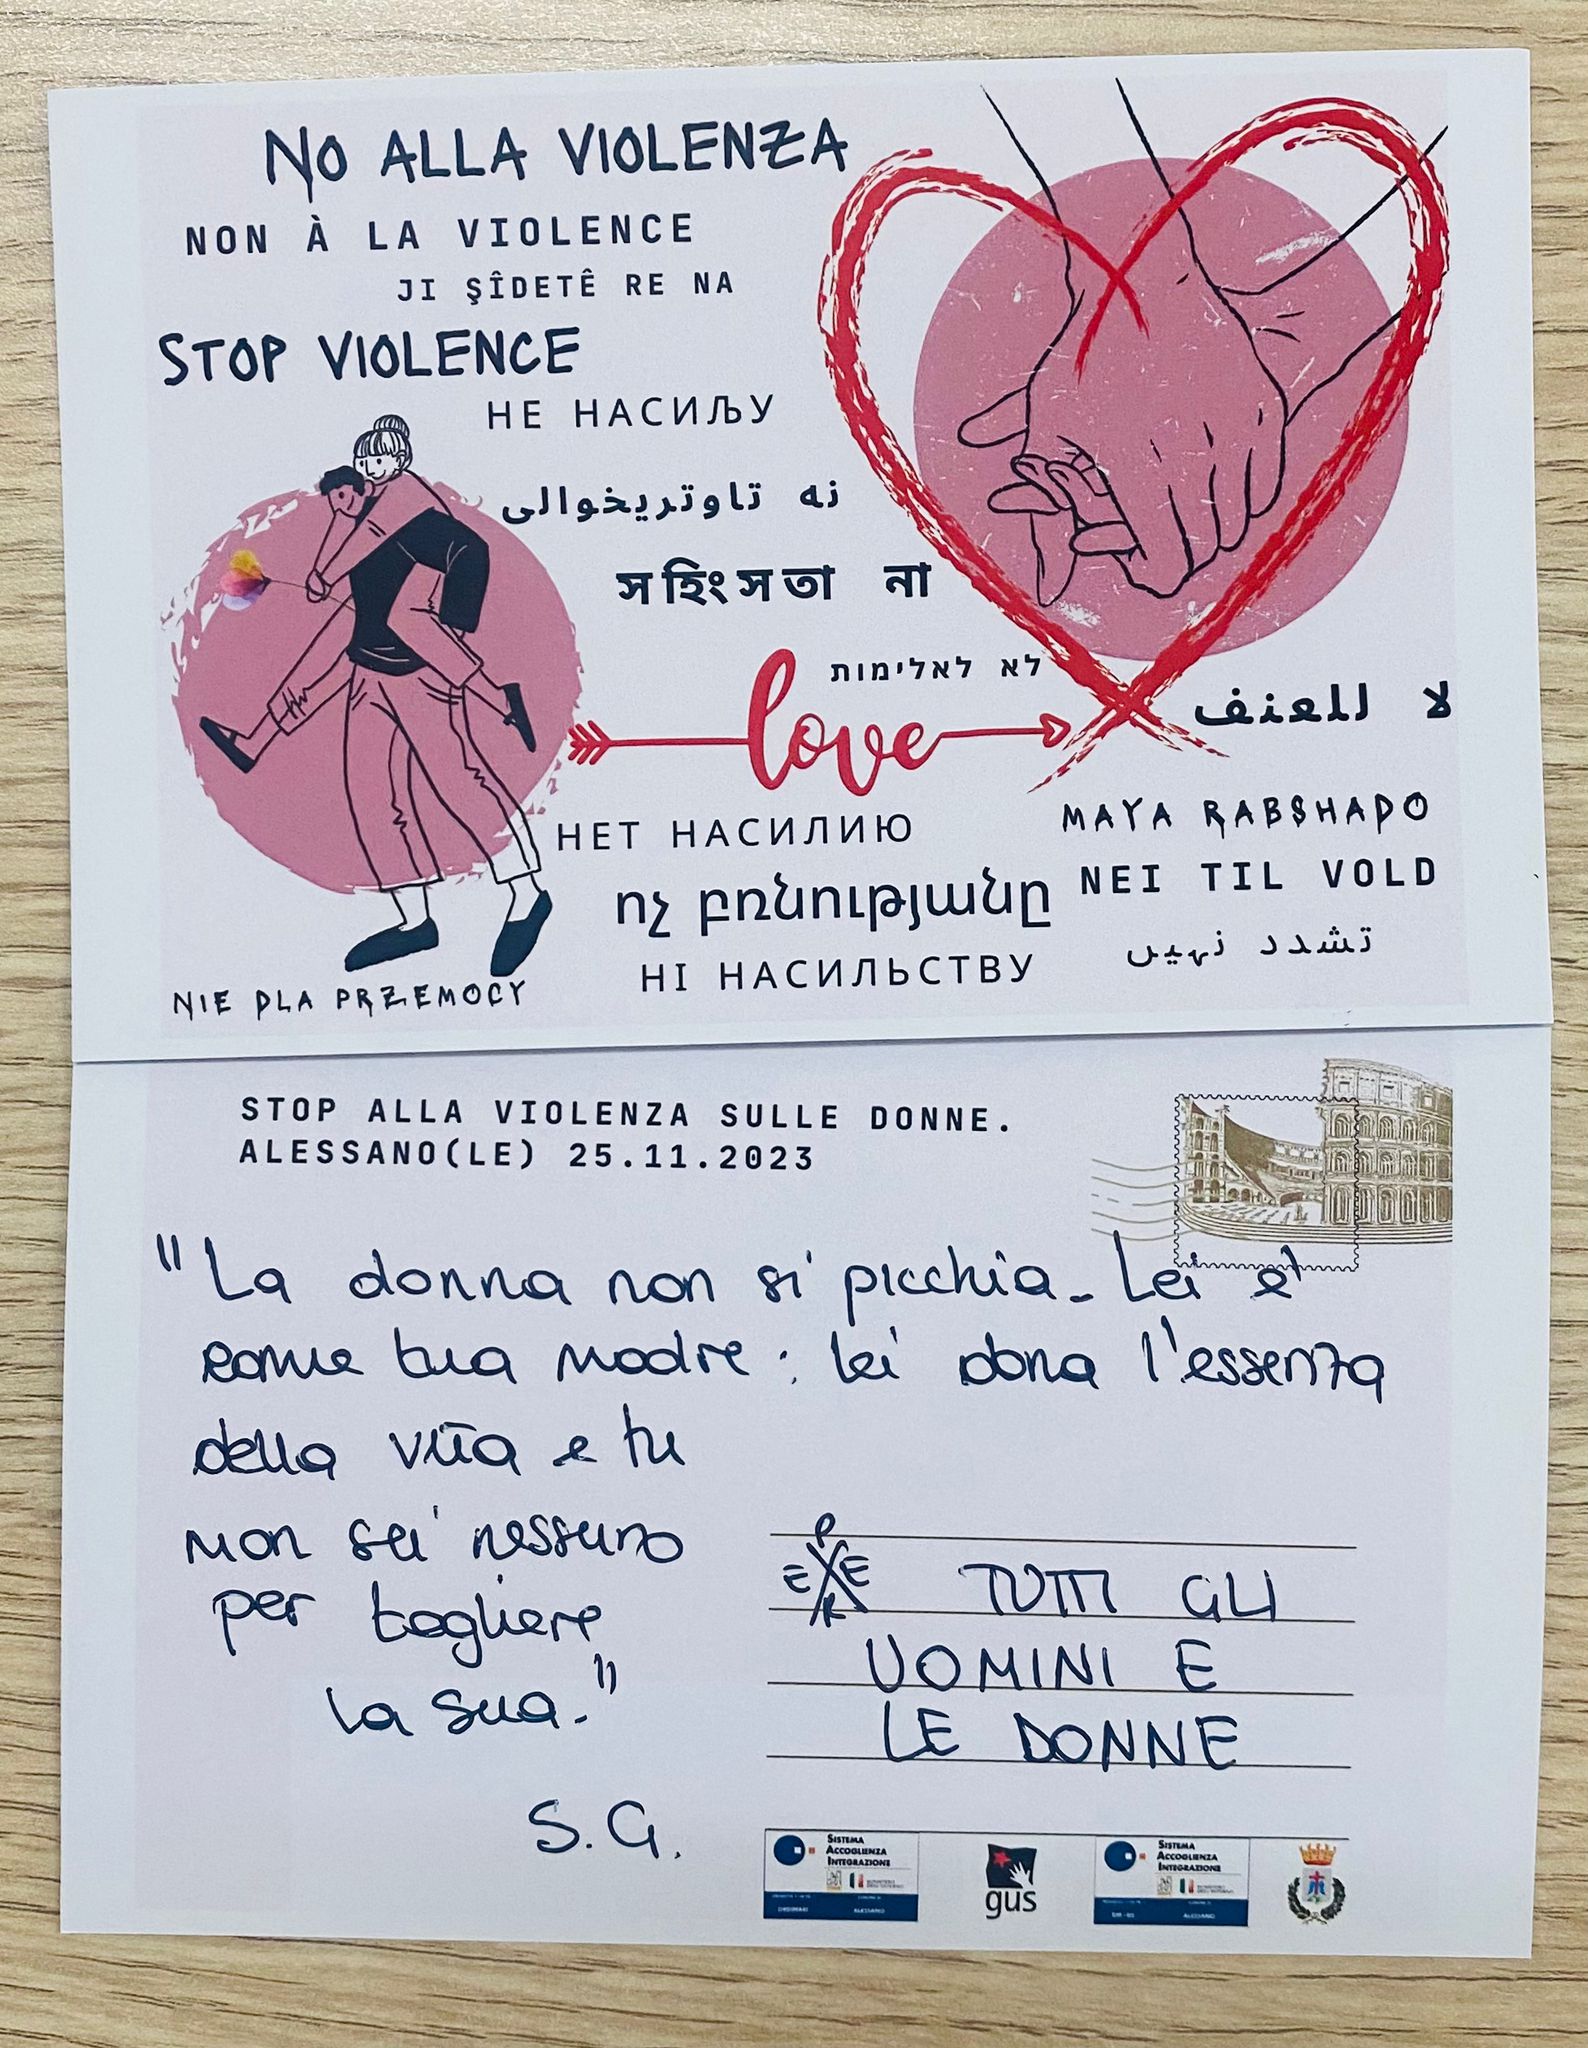 NO ALLA VIOLENZA
NON À LA VIOLENCE
JI ŞÎDETÊ RE NA
STOP VIOLENCE
НЕ НАСИЉУ
نه تاوتریخوالی
সহিংসতা না
לא לאלימות
love
لا للعنف
НЕТ НАСИЛИЮ
MAYA RABSHADO
ոչ բռնությանը
NEI TIL VOLD
НІ НАСИЛЬСТВУ
تشدد نہیں
NIE DLA PRZEMOCY
STOP ALLA VIOLENZA SULLE DONNE.
ALESSANO(LE) 25.11.2023
"La donna non si picchia. Lei è
come tua madre: lei dona l'essenza
della vita e tu
non sei nessuno
per togliere
la sua."
S.G.
PER TUTTI GLI
UOMINI E
LE DONNE
SISTEMA
ACCOGLIENZA
INTEGRAZIONE
ALESSANO
gus
SISTEMA
ACCOGLIENZA
INTEGRAZIONE
ALESSANO